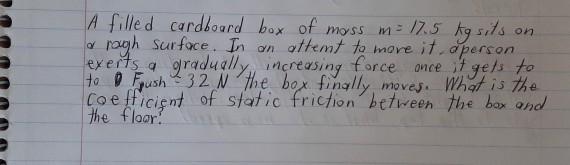 A filled cardboard box of mass m = 17.5 kg sits on
a rough surface. In an attemt to move it, a person
exerts a gradually increasing force once it gets to
to Fpush = 32 N the box finally moves. What is the
coefficient of static friction between the box and
the floor?